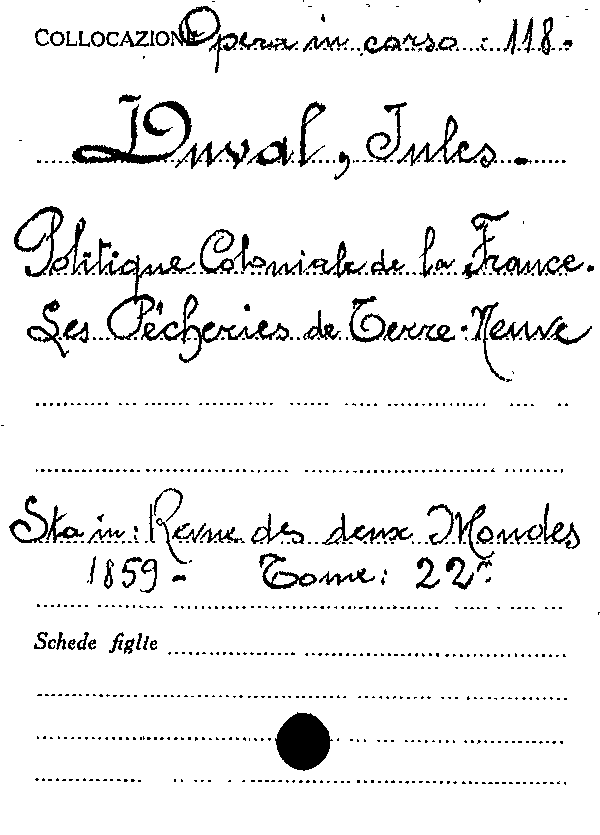 COLLOCAZIONE Opera in corso : 118-
Duval, Jules.
Politique Coloniale de la France.
Les Pêcheries de Terre-Neuve
Sta in: Revue des deux Mondes
1859 - Tome: 22º
Schede figlie